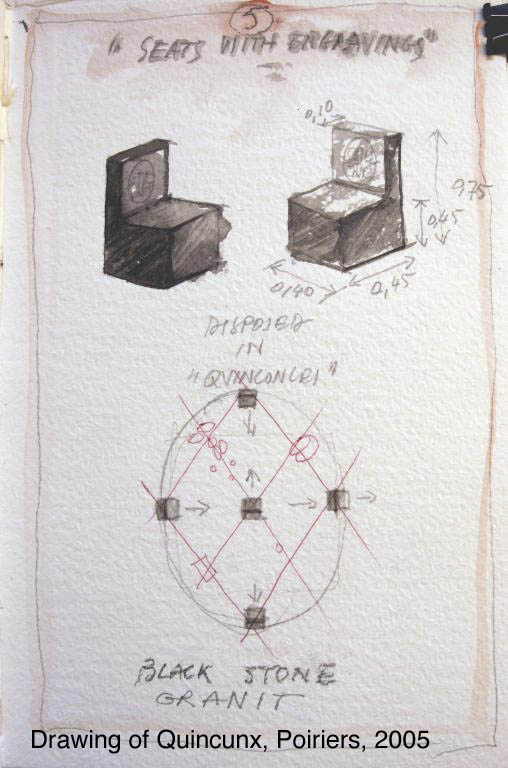 5
"SEATS WITH ENGRAVINGS"
0,10
975
0,45
0,40
0,45
DISPOSED
IN
"QUINCONCES"
BLACK STONE
GRANIT
Drawing of Quincunx, Poiriers, 2005